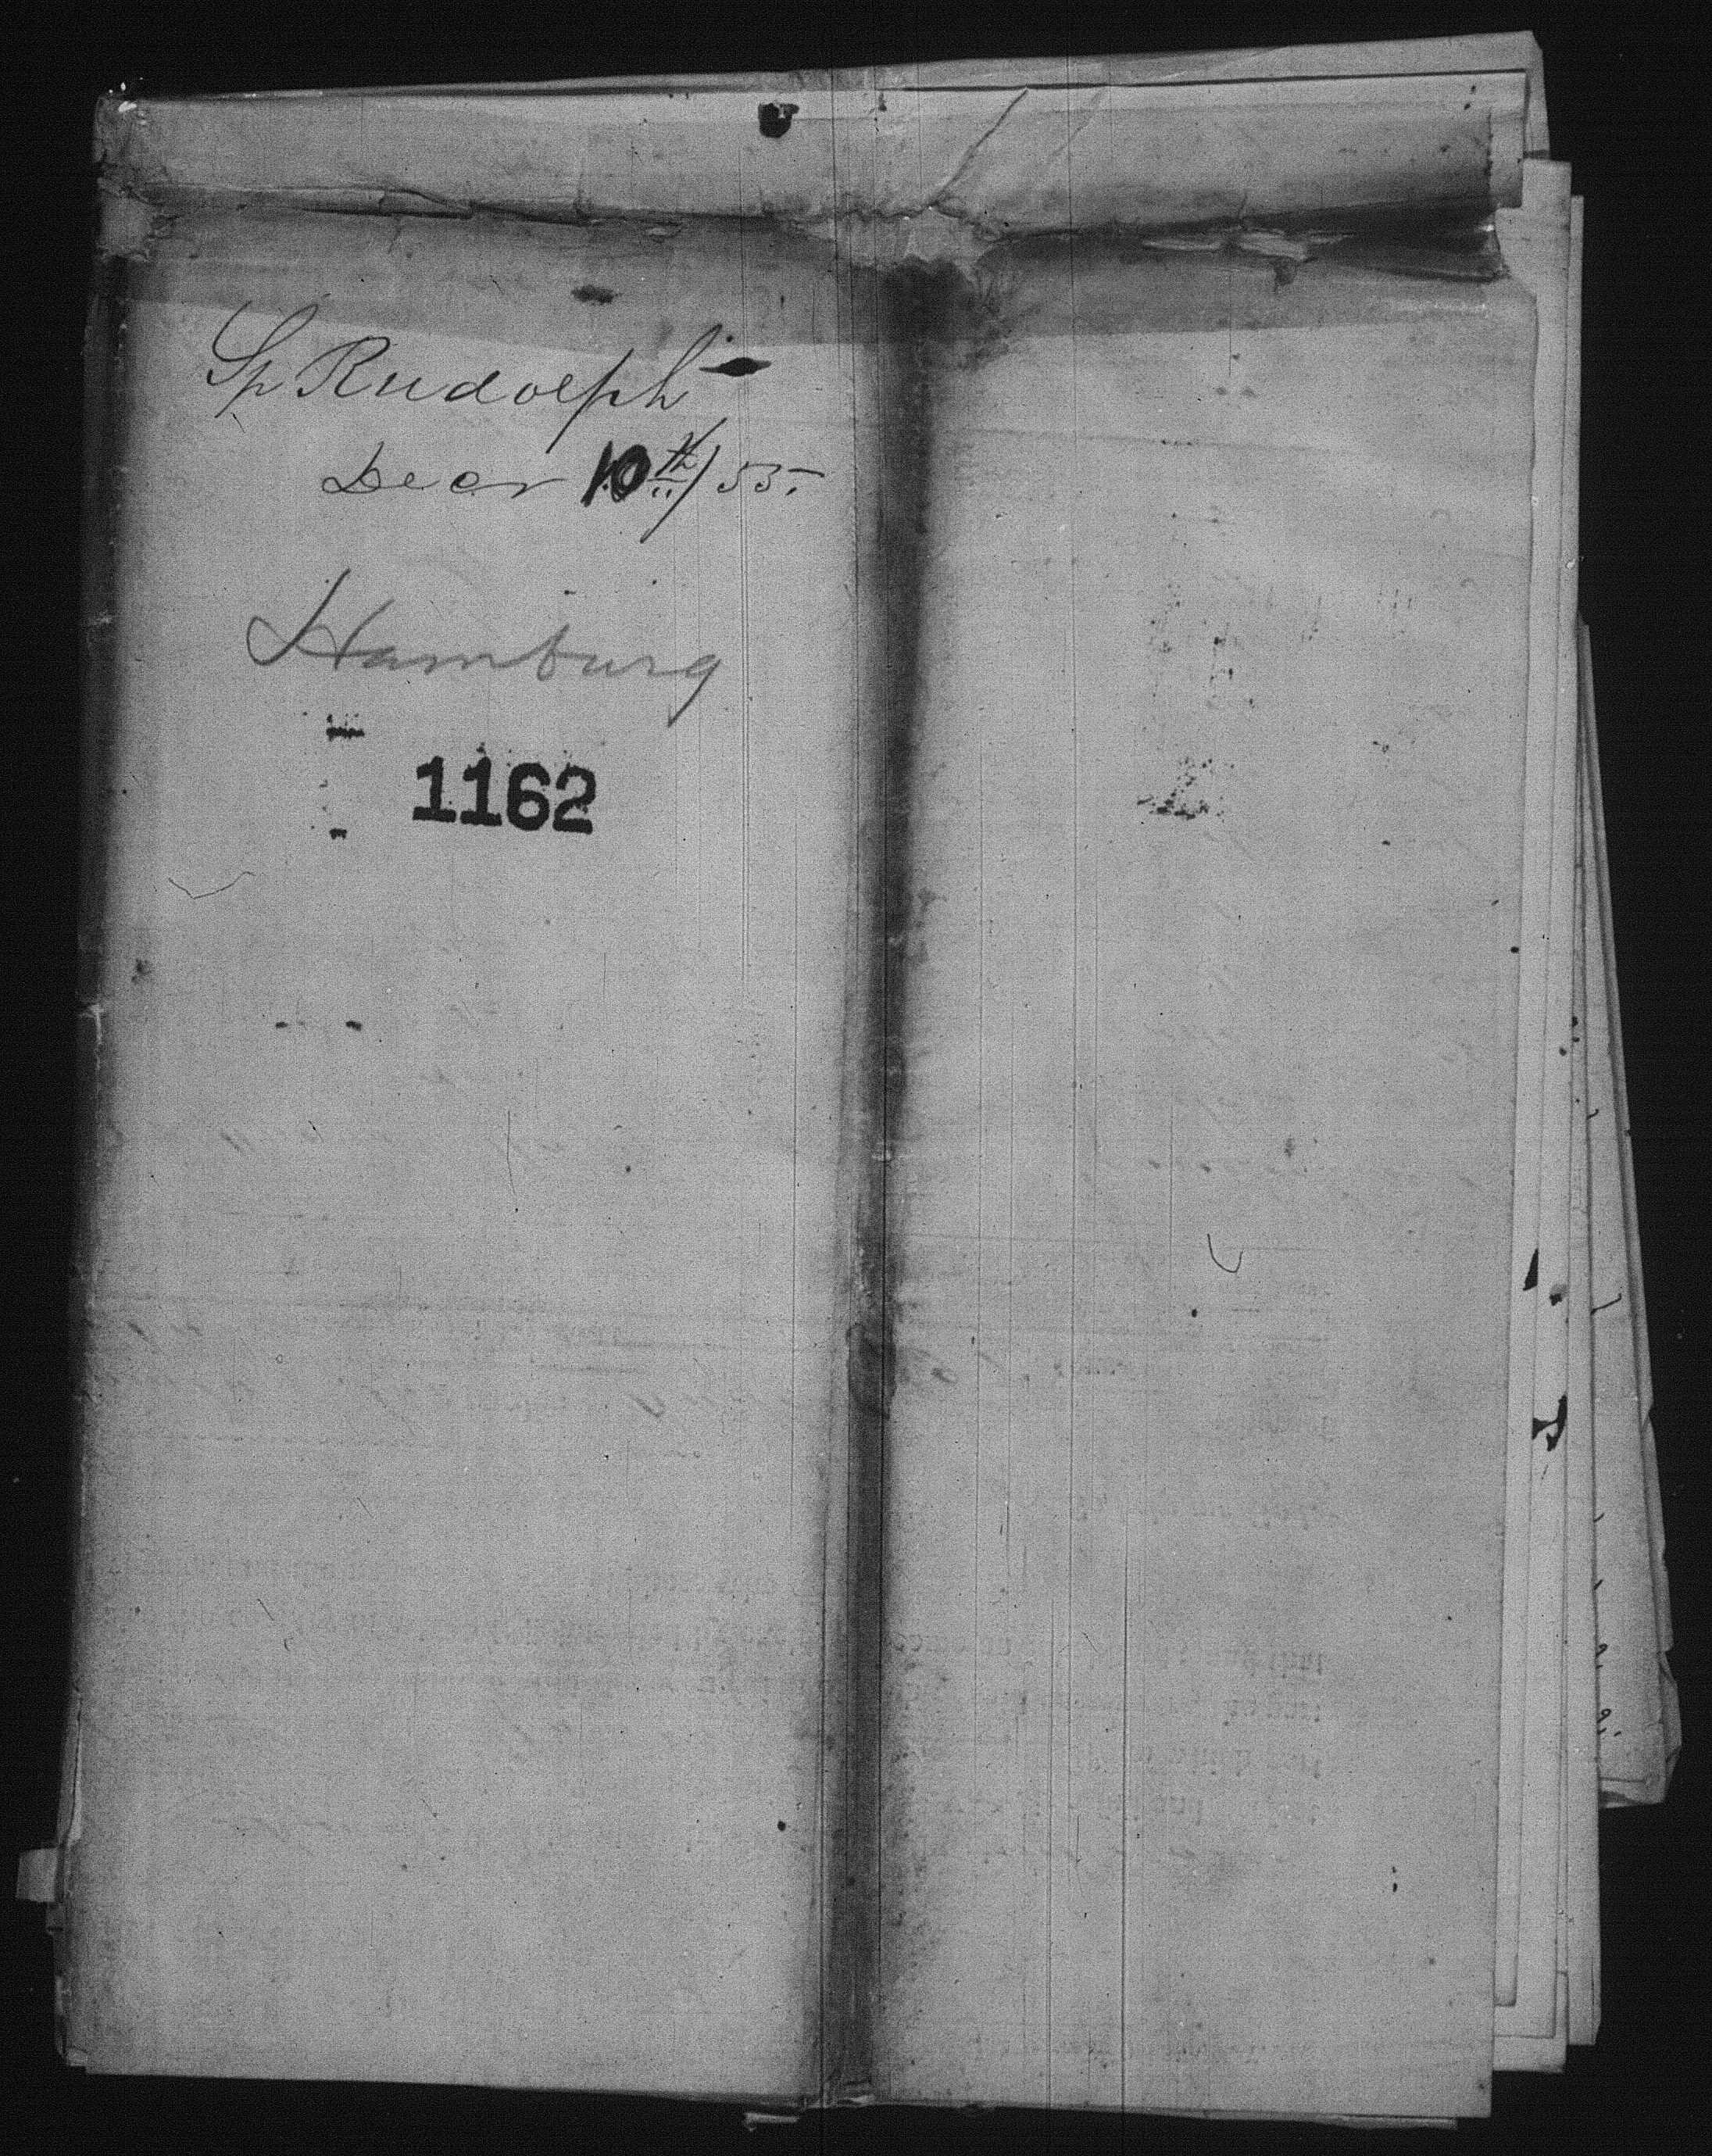 Sp Rudolph
Decr 10th/55.
Hamburg
1162